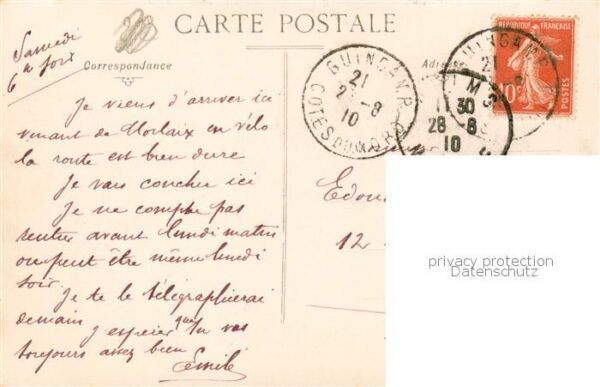 CARTE POSTALE
Correspondance
Samedi
6h soir
Je viens d'arriver ici
venant de Morlaix en vélo
la route est bien dure
Je vais coucher ici
Je ne compte pas
rentrer avant lundi matin
ou peut être même lundi
soir.
Je te le télégraphierai
demain
j'espère que tu vas
toujours assez bien
Emile
GUINGAMP
21
8
10
COTES DU NORD
REPUBLIQUE FRANÇAISE
10c
POSTES
GUINGAMP
21
11 30
28 - 8
10
Edou
12
privacy protection
Datenschutz